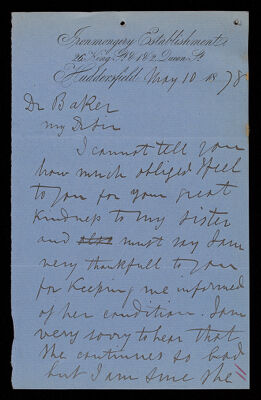 Ironmongery Establishment
26 King St & 1 & 2 Queen St
Huddersfield May 10 1878
Dr Baker
my D Sir
I cannot tell you
how much obliged I feel
to you for your great
kindness to my sister
and also must say I am
very thankfull to you
for keeping me informed
of her condition. I am
very sorry to hear that
she continues so bad
but I am sure she